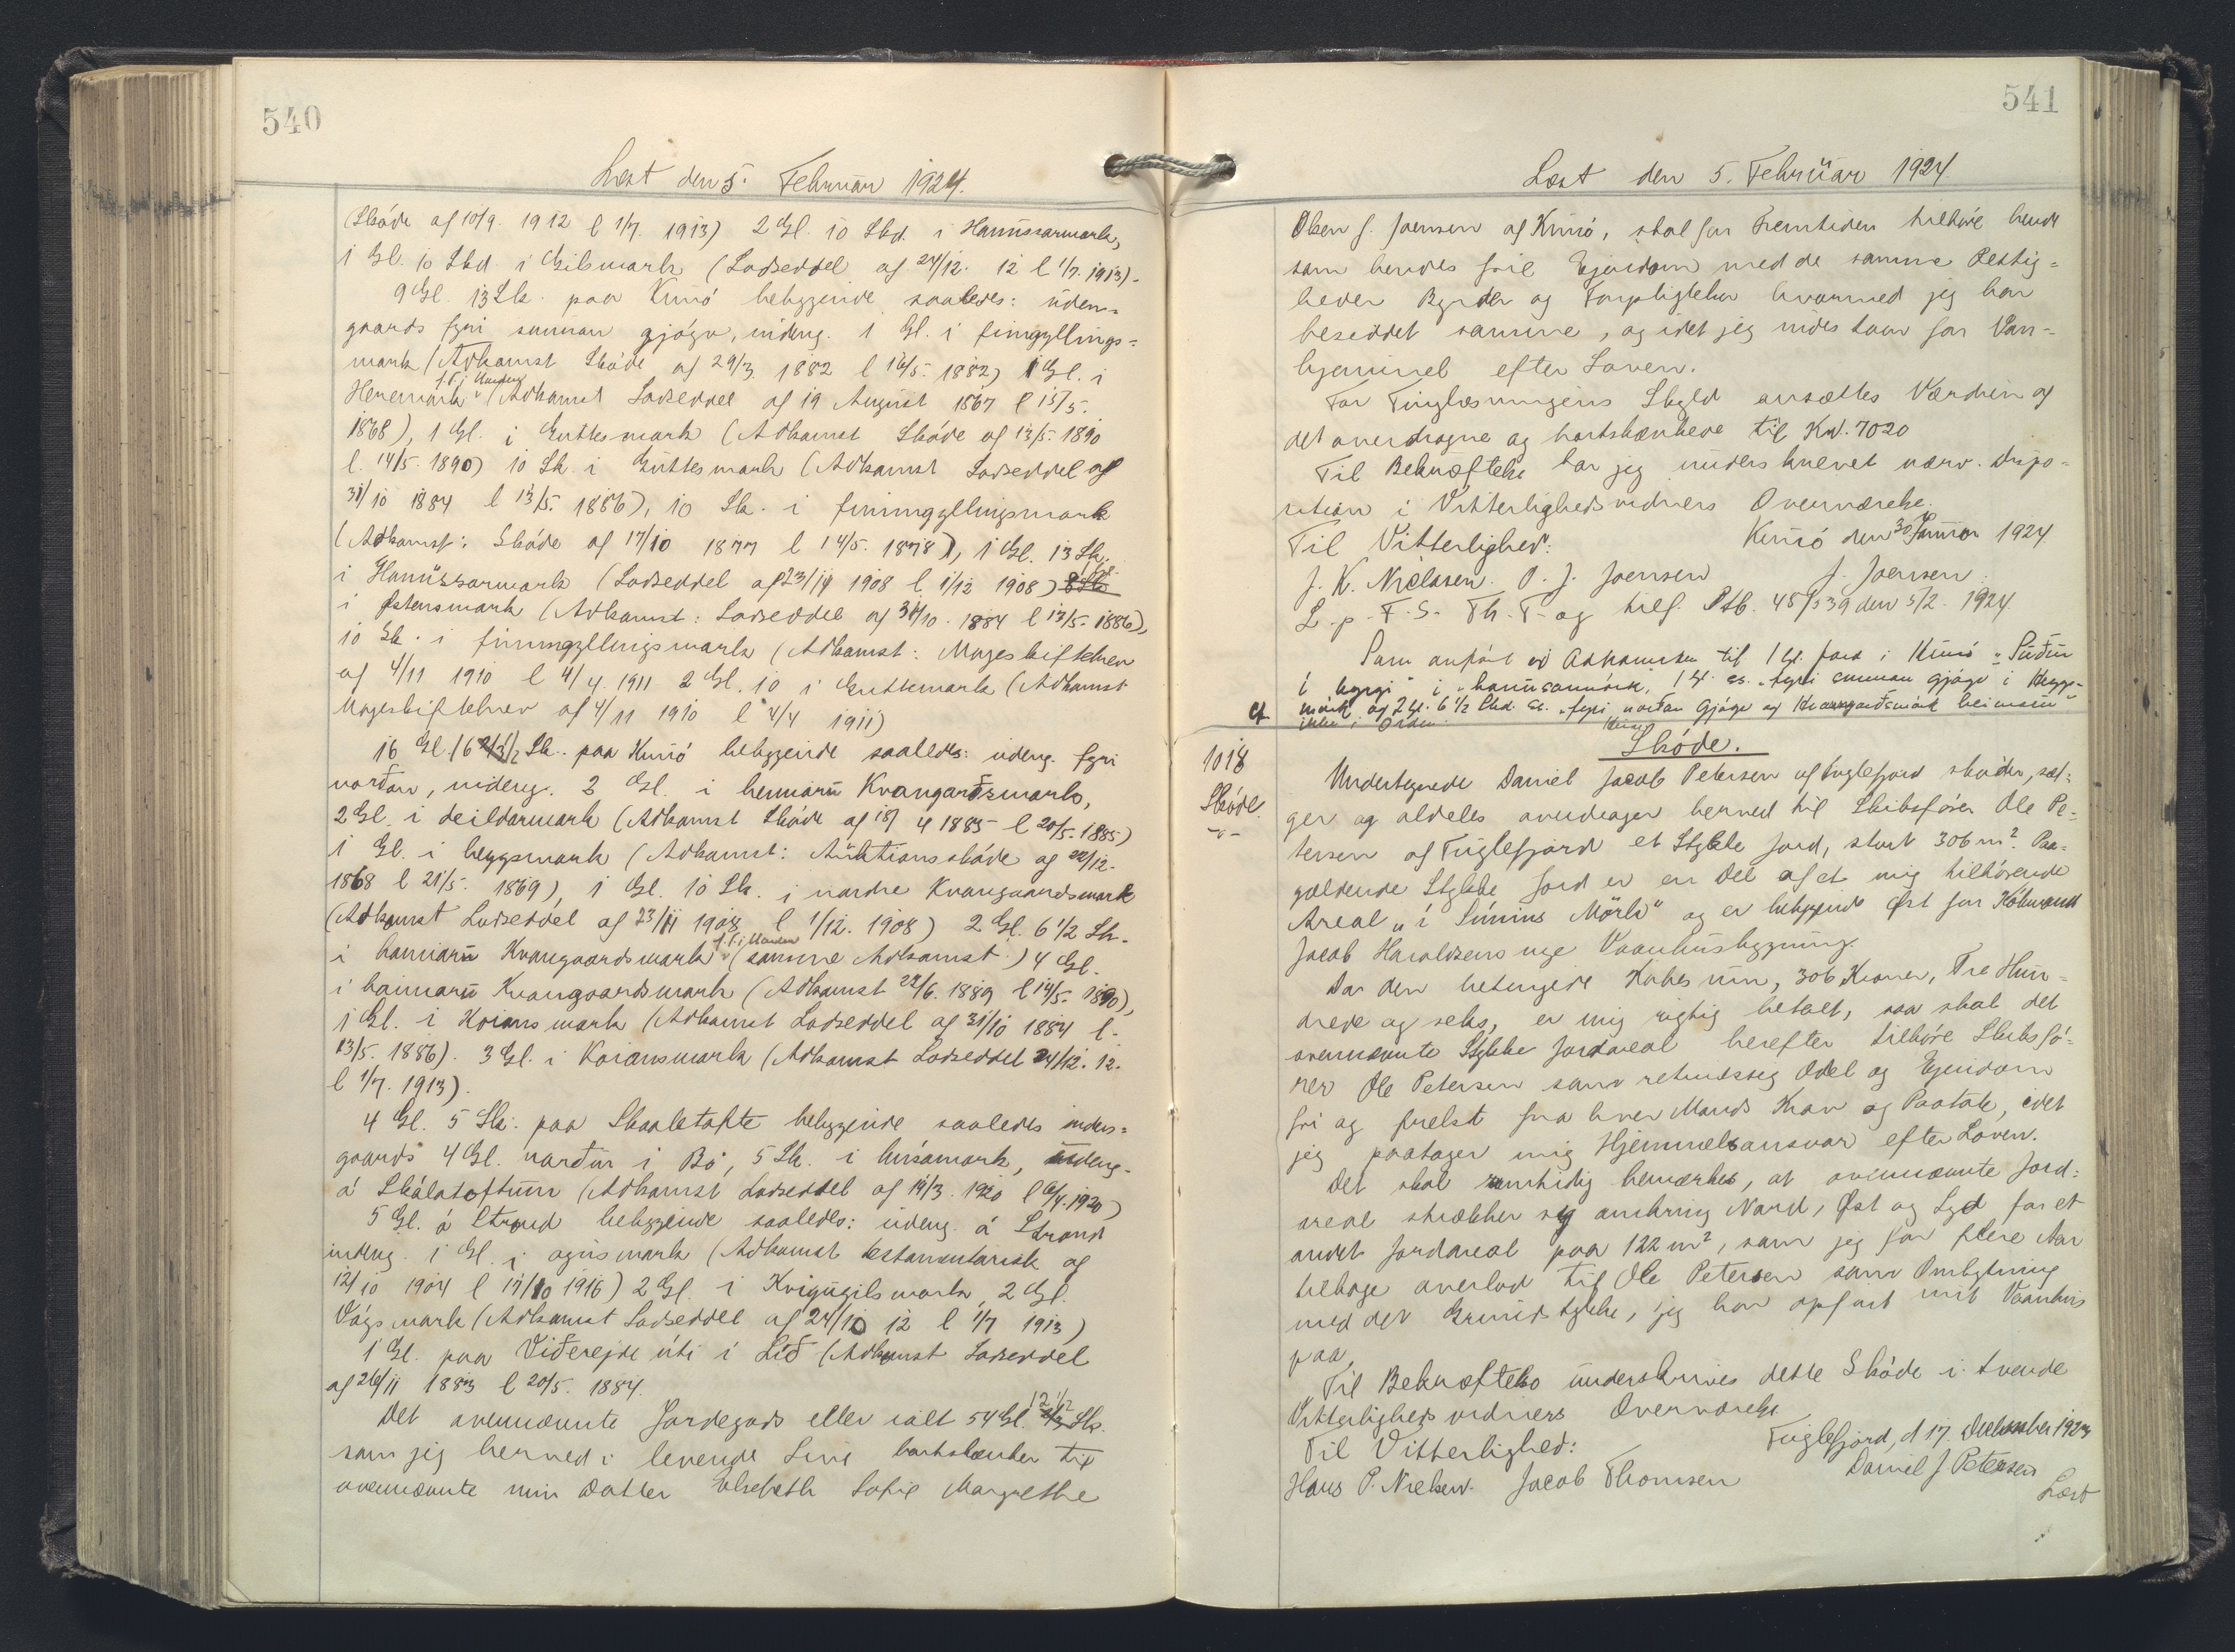 540
Læst den 5. Februar 1924.
(Skóde af 10/9. 1912 l 1/7. 1913) 2 Gl. 10 Skd. i Hanüssarmark,
1 Gl. 10 Skd. i Gilsmark (Lodseddel af 24/12. 12 l 1/7. 1913).
9 Gl. 13 Sk. paa Kunó beliggende saaledes: üden-
gaards fyri sunnan gjógv, indeng. 1 Gl. i fimgyllings-
mark (Adkomst Skóde af 29/3. 1882 l 16/5. 1882) 1 Gl. i
Heremark (Adkomst Lodseddel af 19 August 1867 l 13/5.
1868), 1 Gl. i Guttesmark (Adkomst Skóde af 13/5. 1890
l. 14/5. 1890) 10 Sk. i Güttesmark (Adkomst Lodseddel af
31/10 1884 l 13/5. 1886), 10 Sk. i fimmgyllingsmark
(Adkomst: Skóde af 17/10 1877 l 14/5. 1878), 1 Gl. 13 Sk.
i Hanüssarmark (Lodseddel af 23/11 1908 l 1/12 1908)
i Østensmark (Adkomst: Lodseddel af 31/10. 1884 l 13/5. 1886),
10 Sk. i fimmgyllingsmark (Adkomst: Mageskiftebrev
af 4/11 1910 l 4/4. 1911 2 Gl. 10 i Guttemark (Adkomst
Mageskiftebrev af 4/11 1910 l 4/4 1911)
16 Gl. 6 1/2 Sk. paa Kunó beliggende saaledes: udeng. fyri
norðan, indeng. 2 Gl. i heimarü Kvangarðsmark,
2 Gl. i deildarmark (Adkomst Skóde af 18/4 1885 l 20/5. 1885)
1 Gl. i heggsmark (Adkomst: Auktionsskóde af 22/12.
1868 l 21/5. 1869), 1 Gl. 10 Sk. i nordre Kvangaardsmark
(Adkomst Lodseddel af 23/11 1908 l 1/12. 1908) 2 Gl. 6 1/2 Sk.
i hannarü Kvangaardsmark (samme Adkomst) 4 Gl.
i haimarü Kvangaardsmark (Adkomst 22/6. 1889 l 14/5. 1890),
1 Gl. i Koiansmark (Adkomst Lodseddel af 31/10 1884 l.
13/5. 1886). 3 Gl. i Koiansmark (Adkomst Lodseddel 24/12. 12.
l 1/7. 1913).
4 Gl. 5 Sk. paa Skaaletofte beliggende saaledes inden-
gaards 4 Gl. norður i Bó, 5 Sk. i húsamark, üdeng.
á Skálatoftum (Adkomst Lodseddel af 14/3. 1920 l 6/4. 1920)
5 Gl. á Strond beliggende saaledes: udeng. á Strond
indeng. 1 Gl. i ognsmark (Adkomst testamentarisk af
12/10 1904 l 19/10 1916) 2 Gl. i Kvigügilsmark, 2 Gl.
Vágsmark (Adkomst Lodseddel af 24/10 12 l 1/7 1913)
1 Gl. paa Viðerejde úti í Líð (Adkomst Lodseddel
af 26/11 1883 l 20/5. 1884.
Det ovennævnte Jordegods eller ialt 54 Gl. 12 1/2 Sk.
som jeg herved i levende Live bortskænker til
ovennævnte min Datter Elsebeth Sofie Margrethe
541
Læst den 5. Februar 1924.
Olsen f. Joensen af Kunó, skal for Fremtiden tilhóre hende
som hendes frie Ejendom med de samme Rettig-
heder Byrder og Forpligtelser hvormed jeg har
besiddet samme, og idet jeg indestaar for Van-
hjemmel efter Loven.
For Tinglæsningens Skyld ansættes Værdien af
det overdragne og bortskænkede til Kr. 7020
Til Bekræftelse har jeg underskrevet nærv. dispo-
sition i Vitterlighedsvidners Overværelse.
Kunó den 30 Januar 1924.
Til Vitterlighed:
J. K. Nielasen. O. J. Joensen J. Joensen.
L. p. F. S. Th. T. og tilf. Ptb. 48/539 den 5/2. 1924.
Som anfórt er Adkomsten til 1 Gl. Jord i Kunó "Suður
í bygd" i "hanusarmörk," 1 Gl. "fyri sunnan gjógv i Hegg-
mörk og 2 Gl. 6 1/2 Skd. "fyri norðan Gjógv og Kvangarðsmörk heimaru"
ikke i Orden.
1018
Skóde.
Skóde.
Undertegnede Daniel Jacob Petersen af Fuglefjord skóder, sæl-
ger og aldeles overdrager herved til Skibsfórer Ole Pe-
tersen af Fuglefjord et Stykke Jord, stort 306 m². Paa-
gældende Stykke Jord er en Del af et mig tilhórende
Areal "í Símins Mörk" og er beliggende Øst for Kóbmand
Jacob Haraldsens nye Vaanhusbygning.
Da den betingede Kóbesum, 306 Kroner, Tre Hun-
drede og seks, er mig rigtig betalt, saa skal det
ovennævnte Stykke Jordareal herefter tilhóre Skibsfó-
rer Ole Petersen som retmæssig Odel og Ejendom
fri og frelst fra hver Mands Krav og Paatale, idet
jeg paatager mig Hjemmelsansvar efter Loven.
Det skal samtidig bemærkes, at ovennævnte Jord-
areal strækker sig omkring Nord, Øst og Syd for et
andet Jordareal paa 122 m², som jeg for flere Aar
tilbage overlod til Ole Petersen som Ombytning
med det Grundstykke, jeg har opfórt mit Vaanhus
paa.
Til Bekræftelse underskrives dette Skóde i tvende
Vitterlighedsvidners Overværelse
Fuglefjord, d 17. December 1923
Til Vitterlighed:
Daniel J. Petersen
Hans P. Nielsen. Jacob Thomsen
Læst